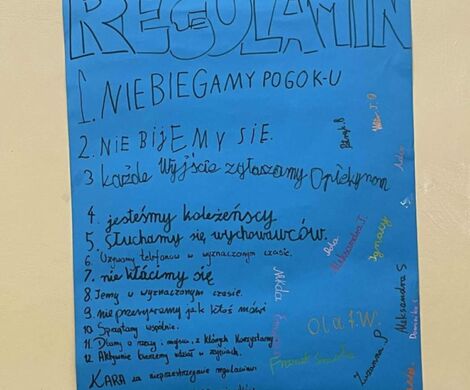 REGULAMIN
1. NIE BIEGAMY PO GOK-U
2. NIE BIJEMY SIĘ.
3 każde Wyjście zgłaszamy Opiekunom
4. jesteśmy koleżeńscy
5. Słuchamy się wychowawców.
6. Używamy telefonów w wyznaczonym czasie.
7. nie kłócimy się
8. Jemy w wyznaczonym czasie.
9. nie przerywamy jak ktoś mówi
10. Sprzątamy wspólnie.
11. Dbamy o rzeczy i miejsca, z których korzystamy.
12. Aktywnie bierzemy udział w zajęciach.
KARA za nieprzestrzeganie regulaminu
Ola
Aleksandra T.
Ignacy
Ola F.W.
Aleksandra S
Zuzanna P